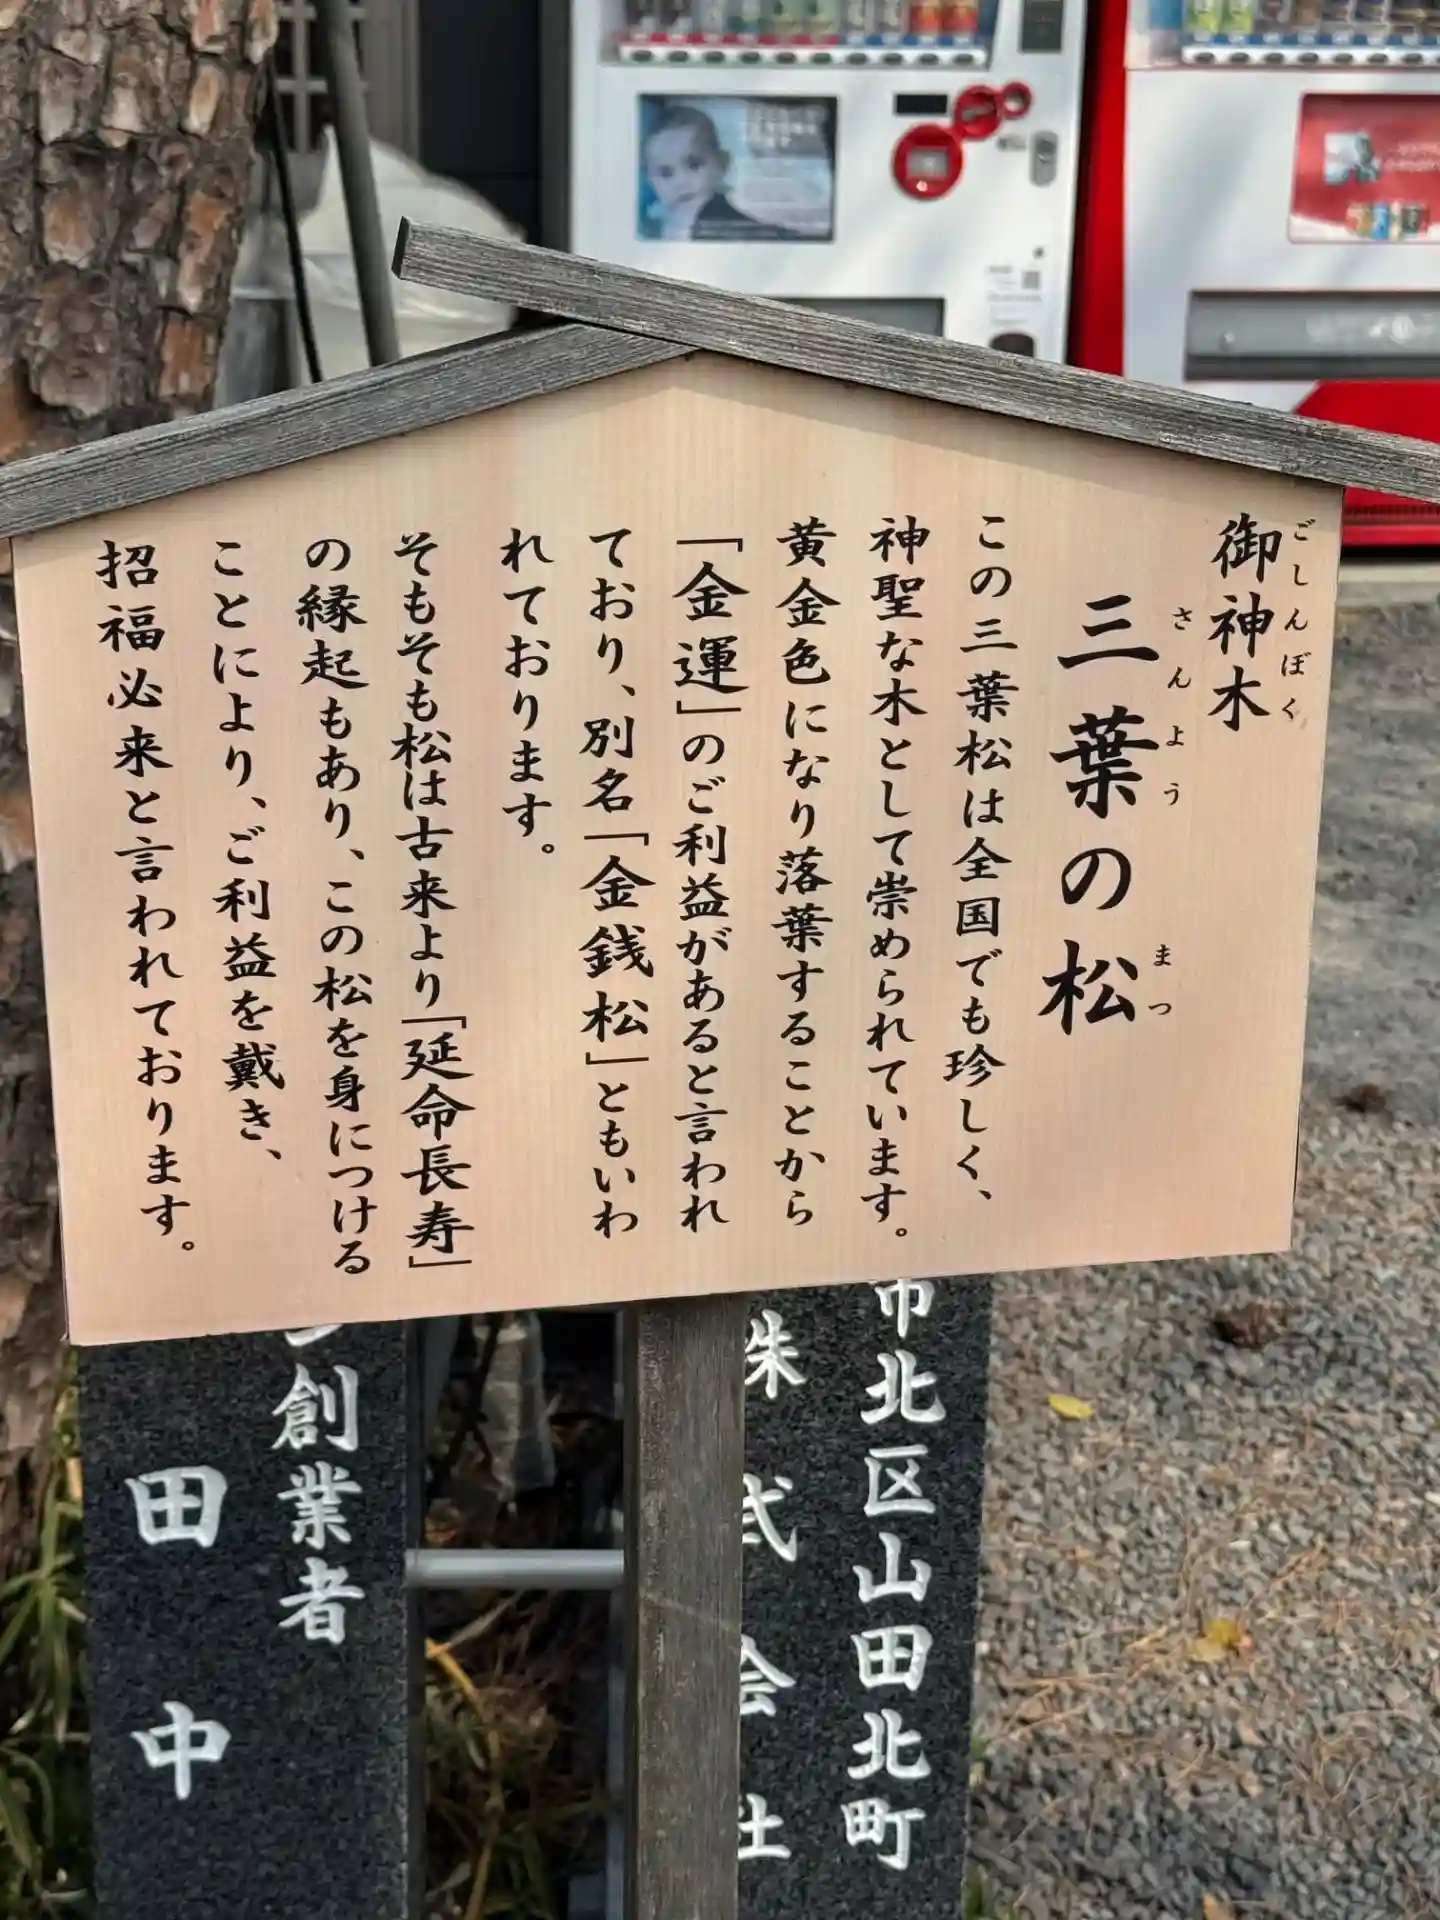 御神木
ごしんぼく
三葉の松
さんよう まつ
この三葉松は全国でも珍しく、
神聖な木として崇められています。
黄金色になり落葉することから
「金運」のご利益があると言われ
ており、別名「金銭松」ともいわ
れております。
そもそも松は古来より「延命長寿」
の縁起もあり、この松を身につける
ことにより、ご利益を戴き、
招福必来と言われております。
市北区山田北町
株式会社
創業者
田中